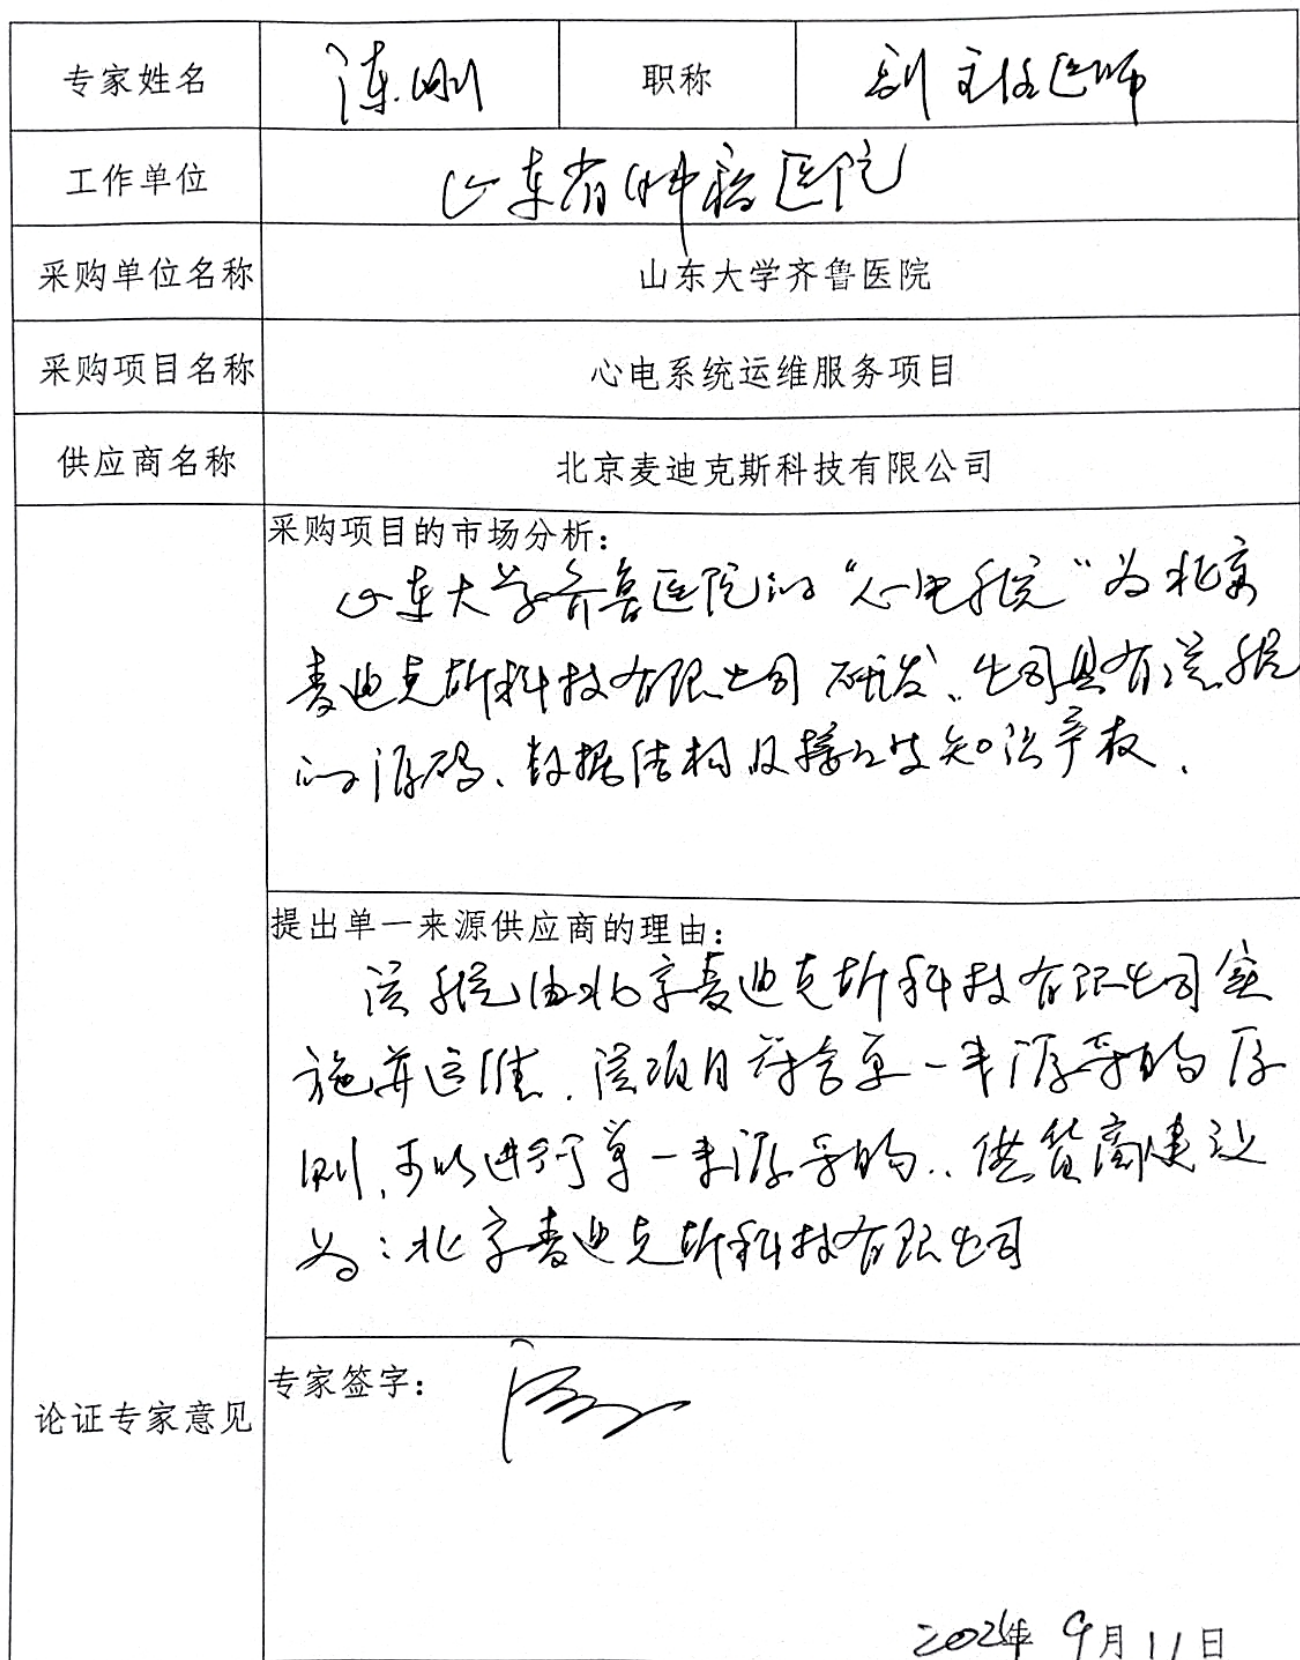 专家姓名 陈刚 职称 副主任医师
工作单位 山东省肿瘤医院
采购单位名称 山东大学齐鲁医院
采购项目名称 心电系统运维服务项目
供应商名称 北京麦迪克斯科技有限公司
采购项目的市场分析:
山东大学齐鲁医院的“心电系统”为北京
麦迪克斯科技有限公司研发、公司具有该系统
的源码、数据结构及接口及知识产权.
提出单一来源供应商的理由:
该系统由北京麦迪克斯科技有限公司实
施并运维.该项目符合单一来源采购原
则,可以进行单一来源采购.供货商建议
为:北京麦迪克斯科技有限公司
论证专家意见
专家签字:
2024年9月11日